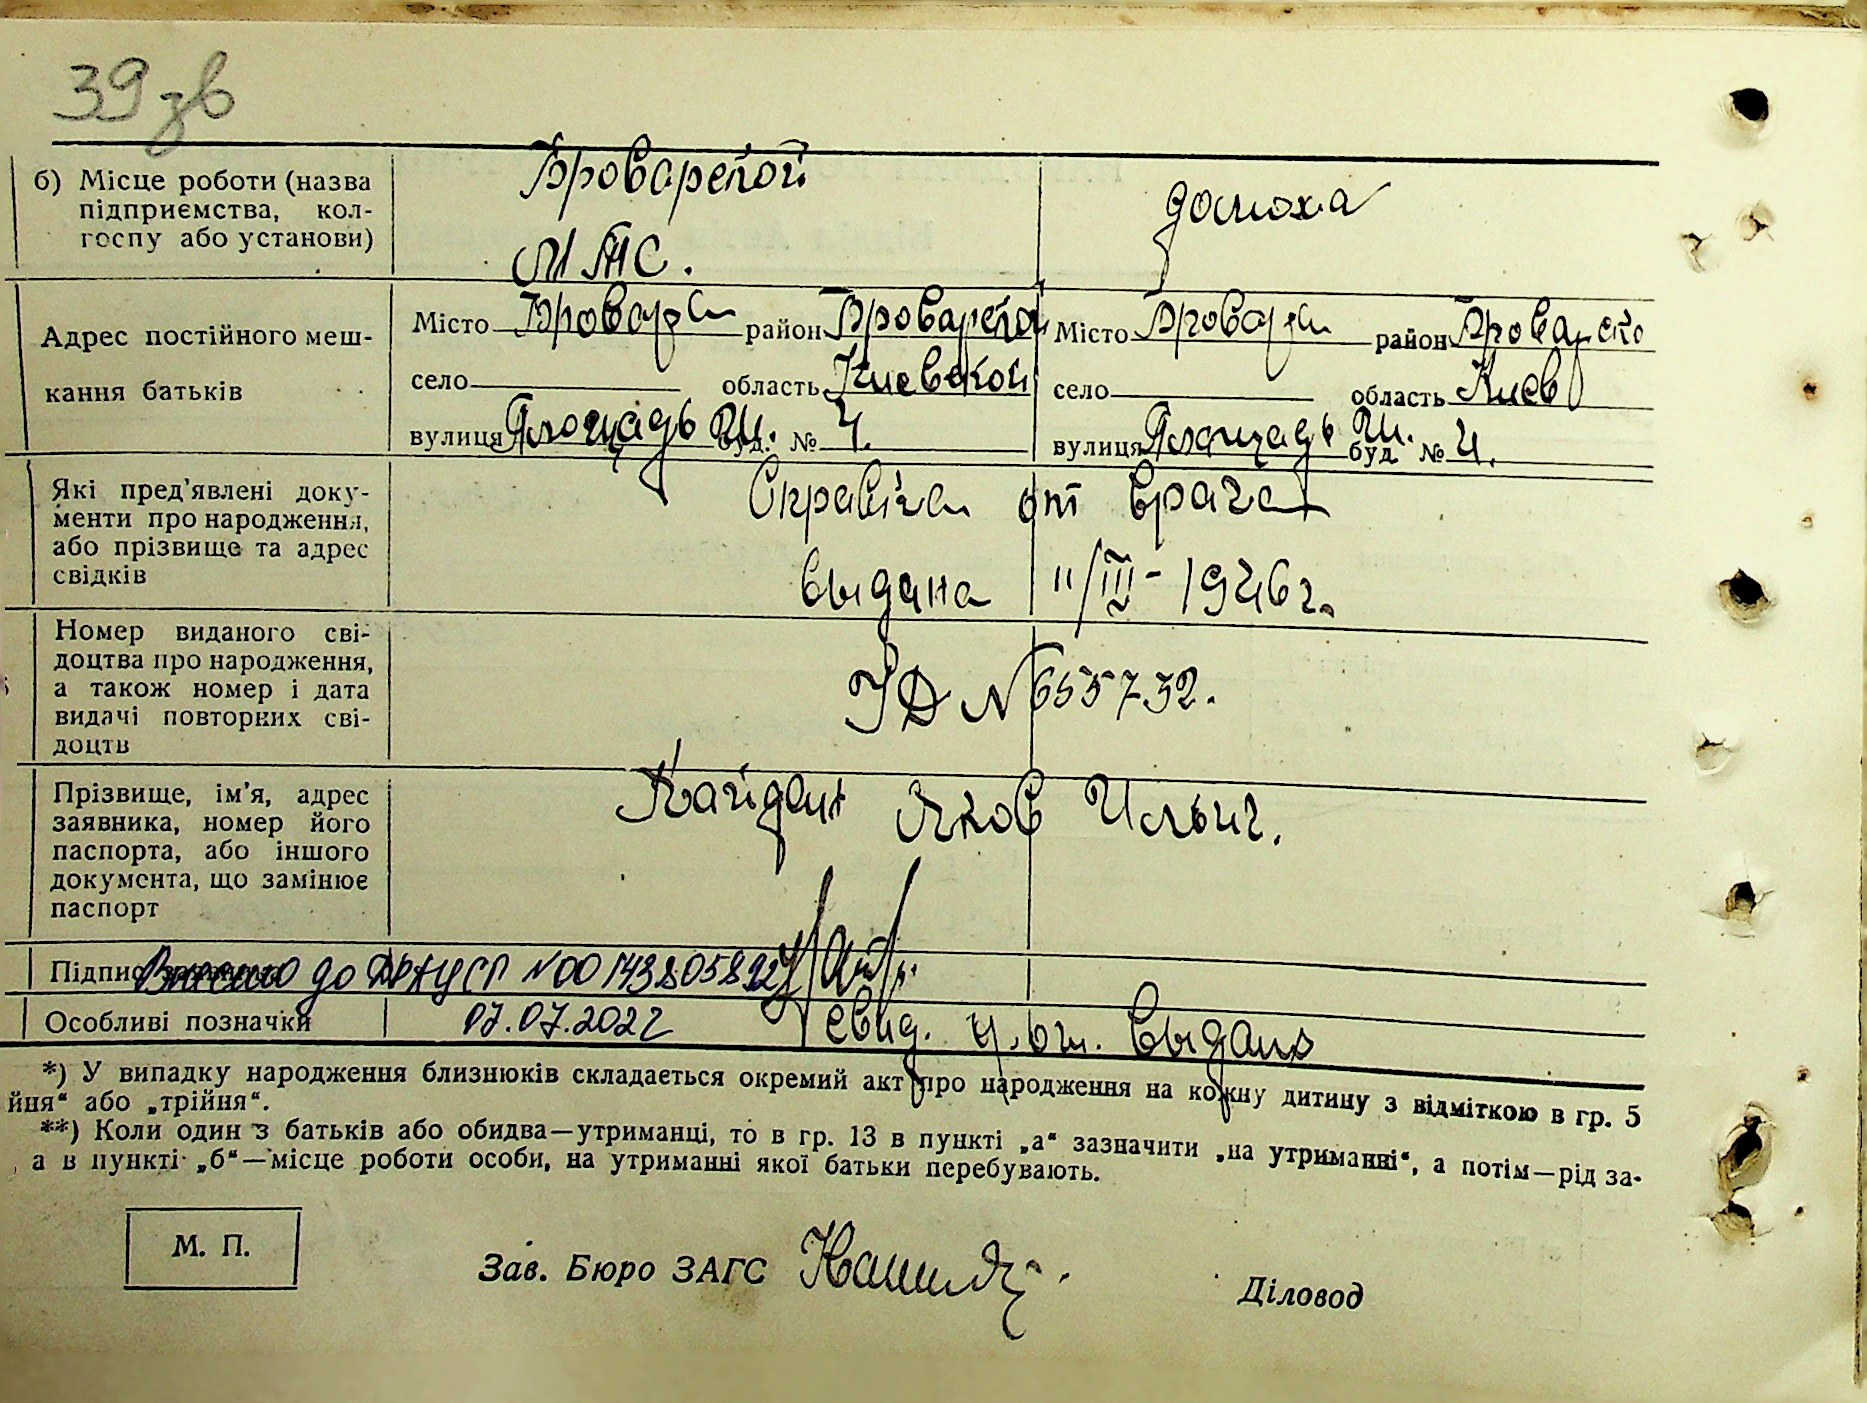 39 зв
б) Місце роботи (назва підприємства, кол-госпу або установи)
Броварской
МТС.
домоха
Адрес постійного меш-
кання батьків
Місто Бровары район Броварской Місто Бровары район Броварско
село область Киевской село область Киев
вулиця Площадь Ш. буд. № 4. вулиця Площадь Ш. буд № 4.
Які пред'явлені доку-
менти про народження,
або прізвище та адрес
свідків
Справка от врача
выдана 11/III - 1946 г.
Номер виданого сві-
доцтва про народження,
а також номер і дата
видачі повторних сві-
доцтв
УД № 655732.
Прізвище, ім'я, адрес
заявника, номер його
паспорта, або іншого
документа, що замінює
паспорт
Кайдан Яков Ильич.
Підпис заявника
Внесено до ДРАЦСГ №00143805892
Особливі позначки
07.07.2022
свид. выдано
*) У випадку народження близнюків складається окремий акт про народження на кожну дитину з відміткою в гр. 5
йня“ або „трійня“.
**) Коли один з батьків або обидва—утриманці, то в гр. 13 в пункті „а“ зазначити „на утриманні“, а потім—рід за-
а в пункті „б“—місце роботи особи, на утриманні якої батьки перебувають.
М. П.
Зав. Бюро ЗАГС
Діловод